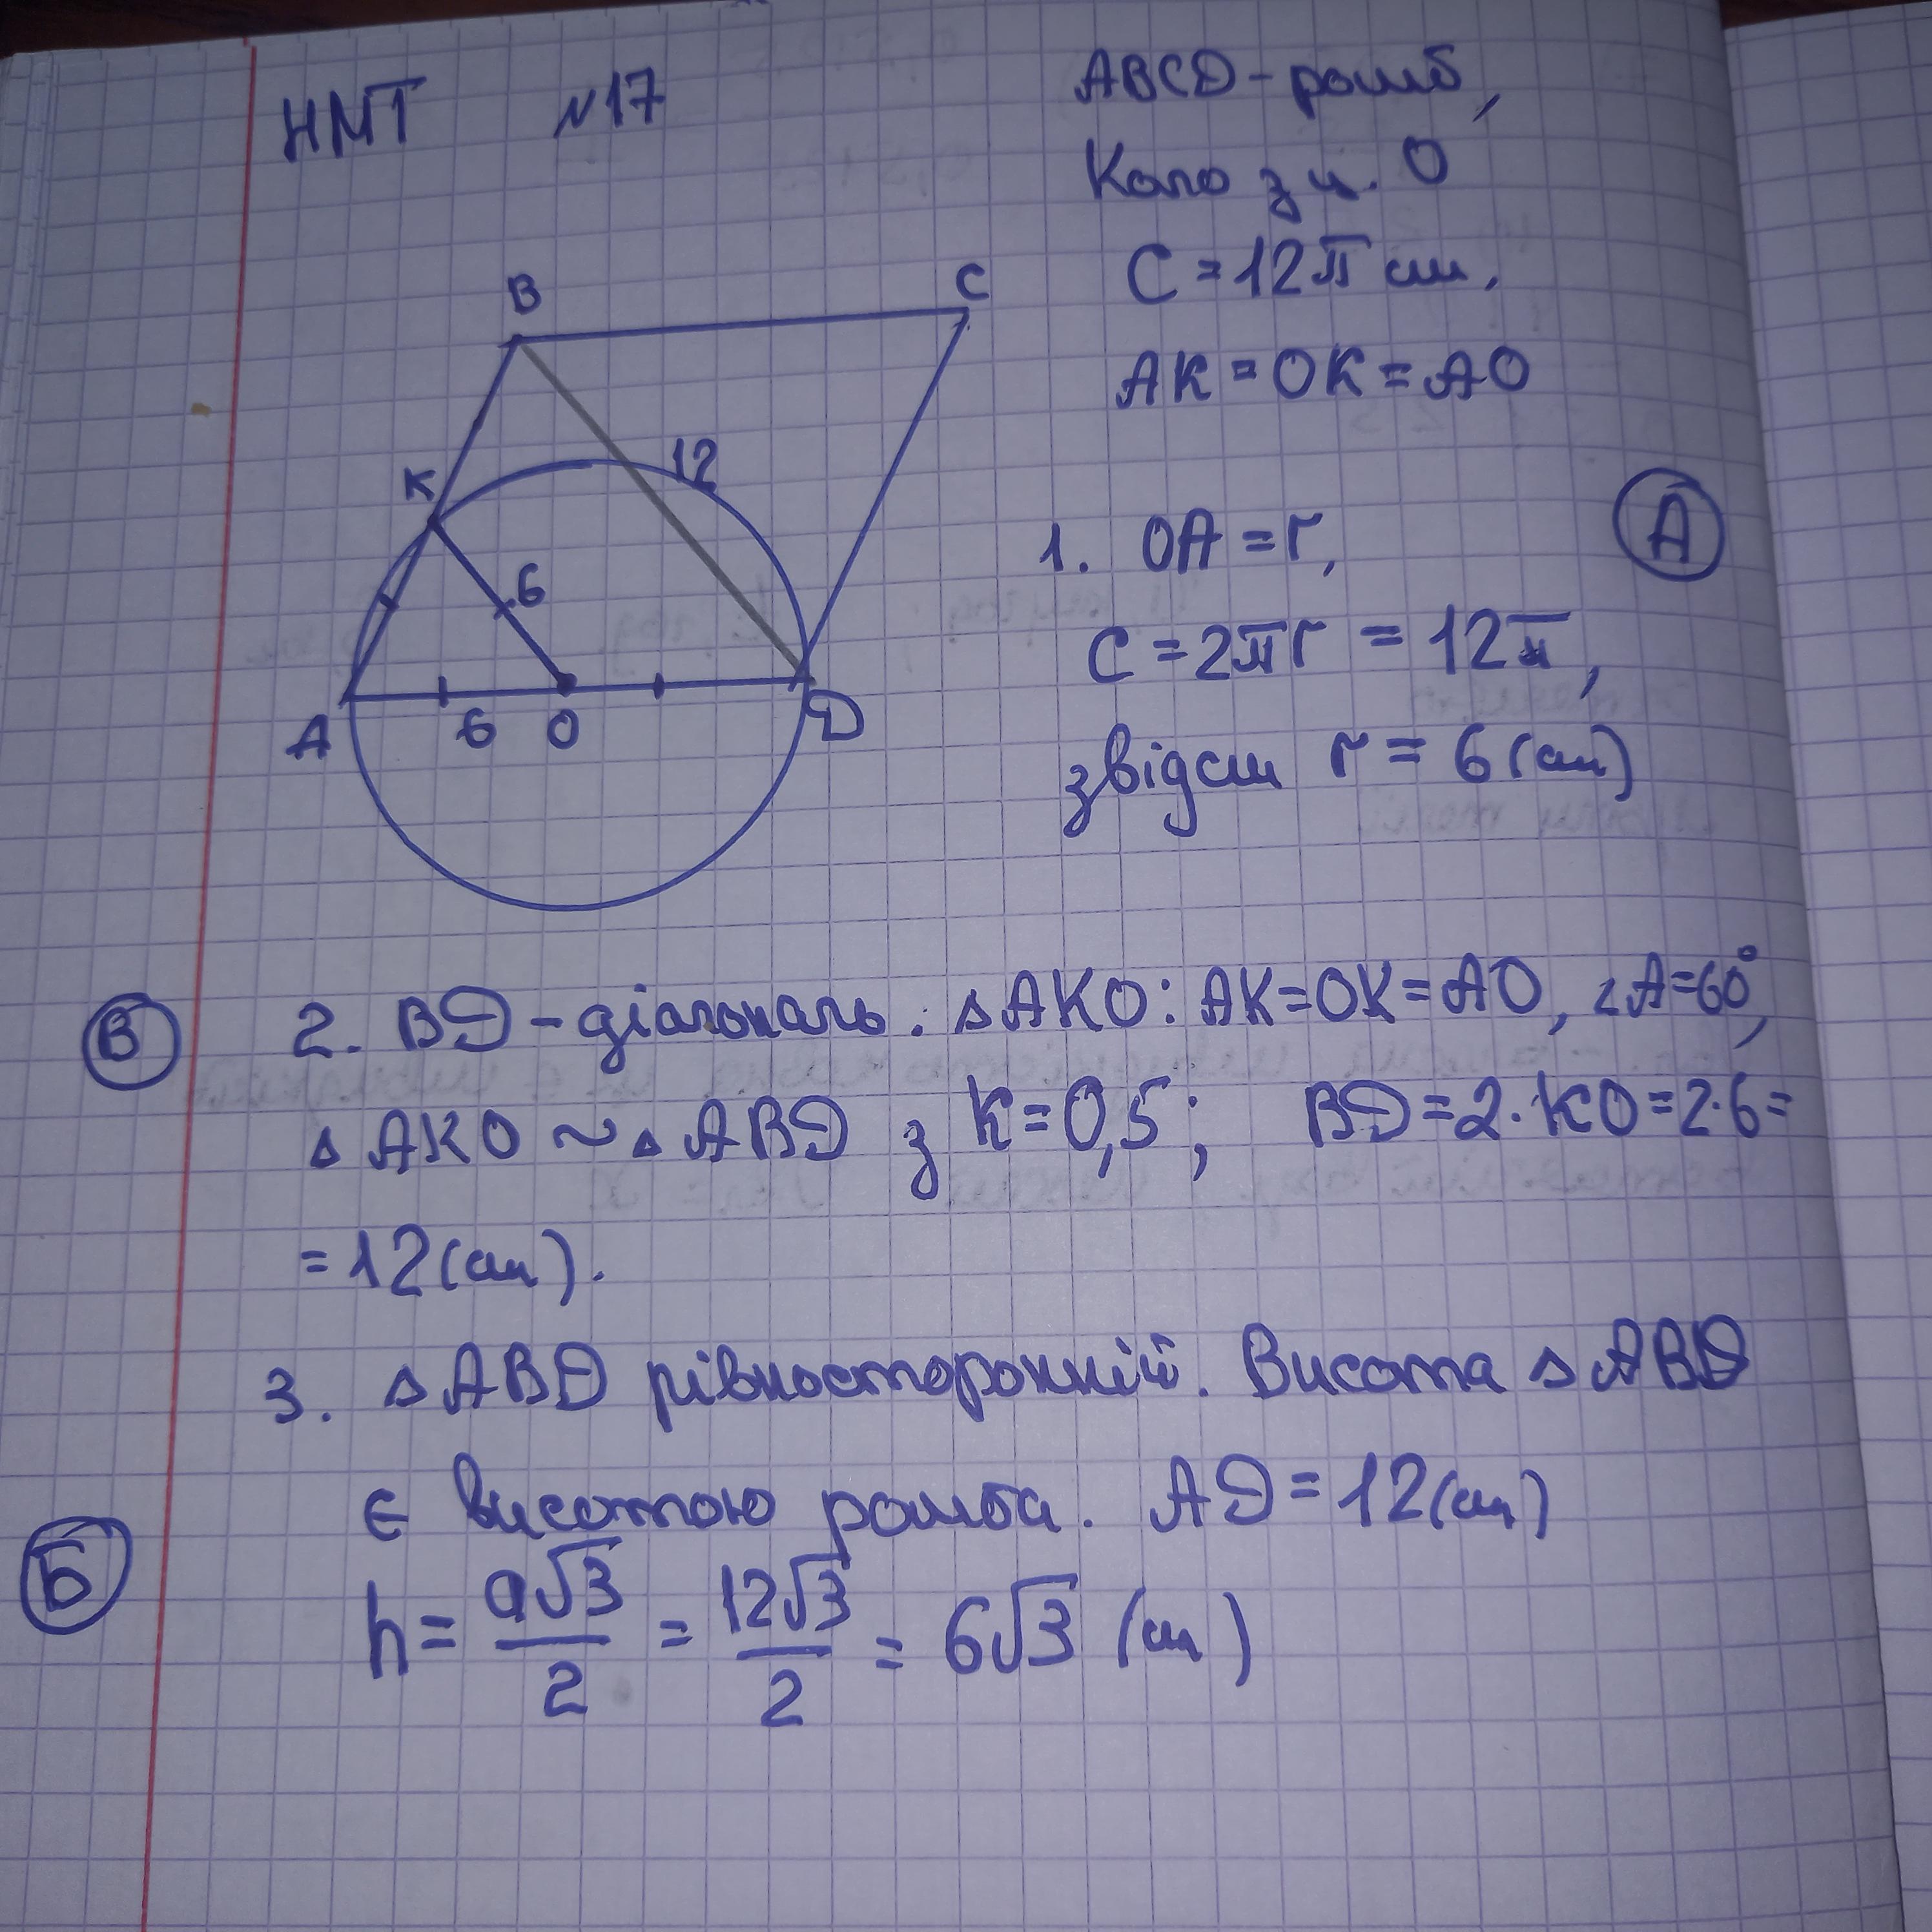 НМТ №17
ABCD - ромб,
Коло з ц. О
C = 12π см,
AK = OK = AO
B
C
K
12
6
A
6
O
D
1. OA = r,
A
C = 2πr = 12π,
звідси r = 6 (см)
В
2. BD - діагональ. △AKO: AK=OK=AO, ∠A=60°,
△AKO ~ △ABD з k=0,5; BD=2·KO=2·6=
=12(см).
3. △ABD рівносторонній. Висота △ABD
є висотою ромба. AD=12(см)
Б
h = a√3/2 = 12√3/2 = 6√3 (см)